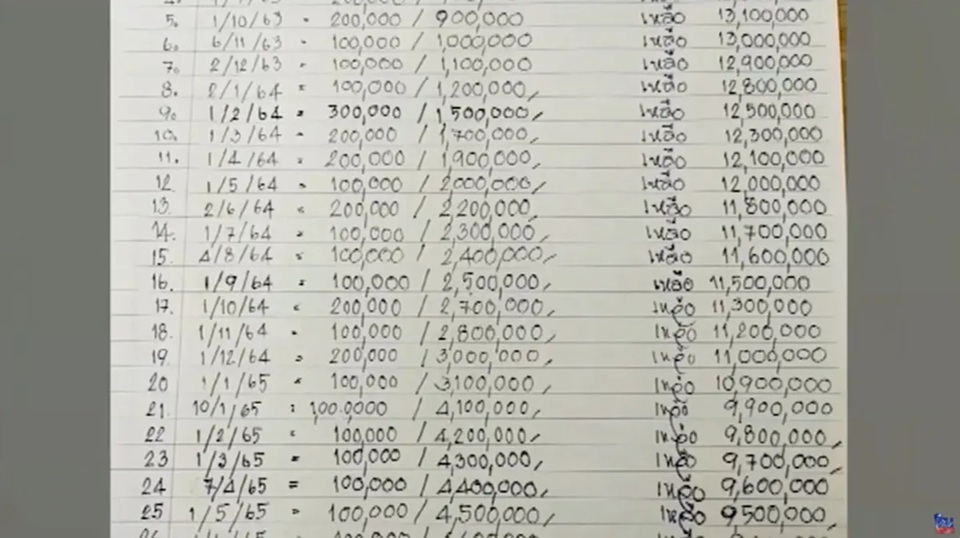 5. 1/10/63 = 200,000 / 900,000 เหลือ 13,100,000
6. 6/11/63 = 100,000 / 1,000,000 เหลือ 13,000,000
7. 2/12/63 = 100,000 / 1,100,000 เหลือ 12,900,000
8. 2/1/64 = 100,000 / 1,200,000, เหลือ 12,800,000
9. 1/2/64 = 300,000 / 1,500,000, เหลือ 12,500,000
10. 1/3/64 = 200,000 / 1,700,000, เหลือ 12,300,000
11. 1/4/64 = 200,000 / 1,900,000, เหลือ 12,100,000
12. 1/5/64 = 100,000 / 2,000,000, เหลือ 12,000,000
13. 2/6/64 = 200,000 / 2,200,000, เหลือ 11,800,000
14. 1/7/64 = 100,000 / 2,300,000, เหลือ 11,700,000
15. 4/8/64 = 100,000 / 2,400,000, เหลือ 11,600,000
16. 1/9/64 = 100,000 / 2,500,000, เหลือ 11,500,000
17. 1/10/64 = 200,000 / 2,700,000, เหลือ 11,300,000
18. 1/11/64 = 100,000 / 2,800,000, เหลือ 11,200,000
19. 1/12/64 = 200,000 / 3,000,000, เหลือ 11,000,000
20 1/1/65 = 100,000 / 3,100,000, เหลือ 10,900,000
21. 10/1/65 = 1,00.0,000 / 4,100,000, เหลือ 9,900,000
22 1/2/65 = 100,000 / 4,200,000, เหลือ 9,800,000,
23 1/3/65 = 100,000 / 4,300,000, เหลือ 9,700,000,
24 7/4/65 = 100,000 / 4,400,000, เหลือ 9,600,000
25 1/5/65 = 100,000 / 4,500,000, เหลือ 9,500,000,